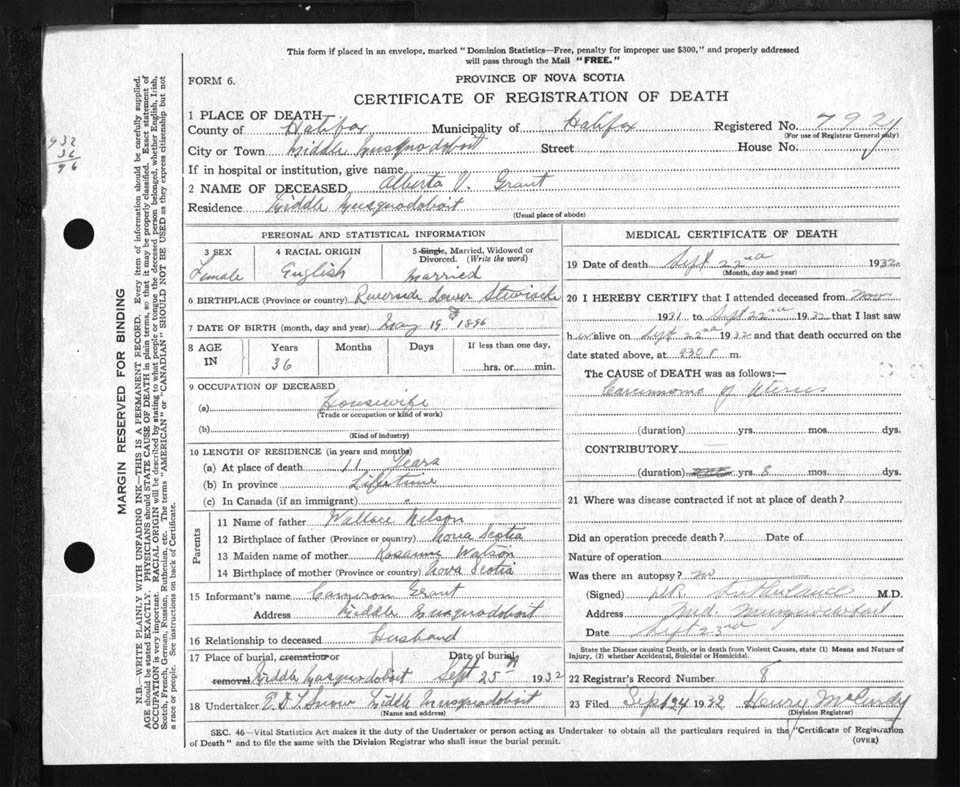 This form if placed in an envelope, marked "Dominion Statistics—Free, penalty for improper use $300," and properly addressed
will pass through the Mail "FREE."
FORM 6.
PROVINCE OF NOVA SCOTIA
CERTIFICATE OF REGISTRATION OF DEATH
1932
36
96
1 PLACE OF DEATH
County of Halifax Municipality of Halifax Registered No. 7921
(For use of Registrar General only)
City or Town Middle Musquodoboit Street House No.
If in hospital or institution, give name
2 NAME OF DECEASED Alberta V. Grant
Residence Middle Musquodoboit
(Usual place of abode)
PERSONAL AND STATISTICAL INFORMATION
3 SEX 4 RACIAL ORIGIN 5 Single, Married, Widowed or
Divorced. (Write the word)
Female English Married
6 BIRTHPLACE (Province or country) Riverside Lower Stewiacke
7 DATE OF BIRTH (month, day and year) May 19 1896
8 AGE IN Years Months Days If less than one day,
36 hrs. or min.
9 OCCUPATION OF DECEASED
(a) Housewife
(Trade or occupation or kind of work)
(b)
(Kind of industry)
10 LENGTH OF RESIDENCE (in years and months)
(a) At place of death 11 Years
(b) In province Lifetime
(c) In Canada (if an immigrant)
Parents
11 Name of father Wallace Nelson
12 Birthplace of father (Province or country) Nova Scotia
13 Maiden name of mother Rosanne Watson
14 Birthplace of mother (Province or country) Nova Scotia
15 Informant's name Cameron Grant
Address Middle Musquodoboit
16 Relationship to deceased Husband
17 Place of burial, cremation or Date of burial
removal Middle Musquodoboit Sept 25th 1932
18 Undertaker Snow Middle Musquodoboit
(Name and address)
MEDICAL CERTIFICATE OF DEATH
19 Date of death Sept 22nd 1932
(Month, day and year)
20 I HEREBY CERTIFY that I attended deceased from Nov
1931 to Sept 22nd 1932 that I last saw
her alive on Sept 22nd 1932 and that death occurred on the
date stated above, at 930 P m.
The CAUSE of DEATH was as follows:—
Carcinoma of Uterus
(duration) yrs. mos. dys.
CONTRIBUTORY
(duration) yrs. 8 mos. dys.
21 Where was disease contracted if not at place of death?
Did an operation precede death? Date of
Nature of operation
Was there an autopsy? no
(Signed) Sutherland M.D.
Address Mid. Musquodoboit
Date Sept 23rd
State the Disease causing Death, or in death from Violent Causes, state (1) Means and Nature of
Injury, (2) whether Accidental, Suicidal or Homicidal.
22 Registrar's Record Number 8
23 Filed Sept 24 1932 Henry McCurdy
(Division Registrar)
SEC. 46—Vital Statistics Act makes it the duty of the Undertaker or person acting as Undertaker to obtain all the particulars required in the "Certificate of Registration
of Death" and to file the same with the Division Registrar who shall issue the burial permit.
(OVER)
MARGIN RESERVED FOR BINDING
N.B.—WRITE PLAINLY WITH UNFADING INK—THIS IS A PERMANENT RECORD. Every item of information should be carefully supplied.
AGE should be stated EXACTLY. PHYSICIANS should STATE CAUSE OF DEATH in plain terms, so that it may be properly classified. Exact statement of
OCCUPATION is very important. RACIAL ORIGIN will be described by stating to what people or tongue the deceased person belonged, whether English, Irish,
Scotch, French, German, Russian, Ruthenian, etc. The terms "AMERICAN" or "CANADIAN" SHOULD NOT BE USED as they express citizenship but not
a race or people. See instructions on back of Certificate.